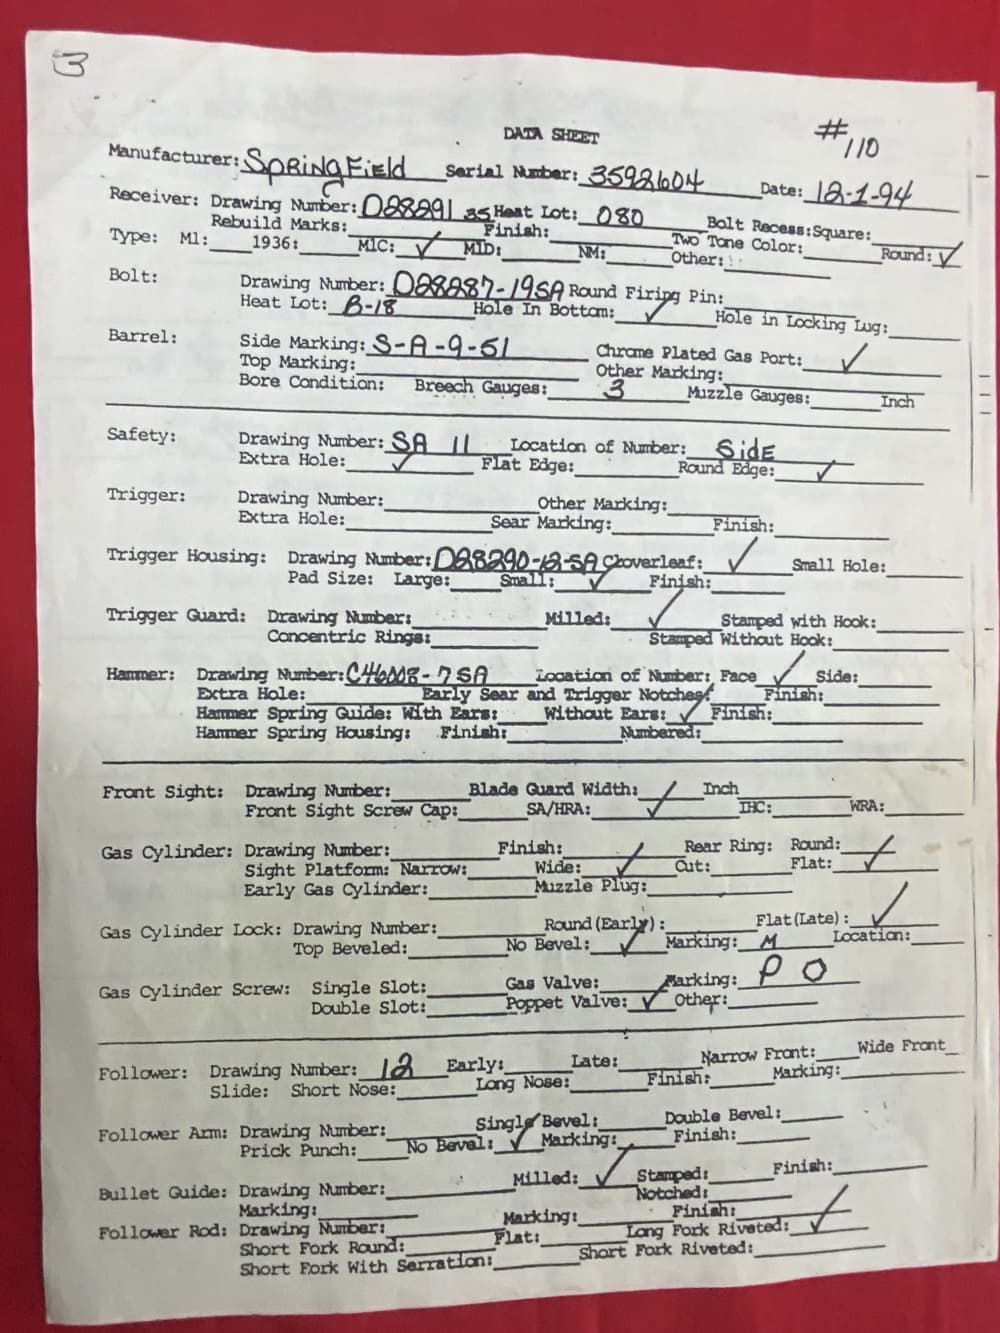 3
DATA SHEET
#110
Manufacturer: SPRINGFIEld Serial Number: 3592604 Date: 12-1-94
Receiver: Drawing Number: D28291 35 Heat Lot: 080 Bolt Recess: Square:
Rebuild Marks: Finish: Two Tone Color: Round: ✓
Type: M1: 1936: M1C: ✓ M1D: NM: Other:
Bolt: Drawing Number: D28287-19SA Round Firing Pin:
Heat Lot: B-18 Hole In Bottom: ✓ Hole in Locking Lug:
Barrel: Side Marking: S-A-9-51 Chrome Plated Gas Port: ✓
Top Marking: Other Marking:
Bore Condition: Breech Gauges: 3 Muzzle Gauges: Inch
Safety: Drawing Number: SA 11 Location of Number: SidE
Extra Hole: ✓ Flat Edge: Round Edge: ✓
Trigger: Drawing Number: Other Marking:
Extra Hole: Sear Marking: Finish:
Trigger Housing: Drawing Number: D28290-12-SA Cloverleaf: ✓ Small Hole:
Pad Size: Large: Small: ✓ Finish:
Trigger Guard: Drawing Number: Milled: ✓ Stamped with Hook:
Concentric Rings: Stamped Without Hook:
Hammer: Drawing Number: C46008-7SA Location of Number: Face ✓ Side:
Extra Hole: Early Sear and Trigger Notches: Finish:
Hammer Spring Guide: With Ears: Without Ears: ✓ Finish:
Hammer Spring Housing: Finish: Numbered:
Front Sight: Drawing Number: Blade Guard Width: Inch
Front Sight Screw Cap: SA/HRA: ✓ IHC: WRA:
Gas Cylinder: Drawing Number: Finish: Rear Ring: Round:
Sight Platform: Narrow: Wide: ✓ Cut: Flat: ✓
Early Gas Cylinder: Muzzle Plug:
Gas Cylinder Lock: Drawing Number: Round (Early): Flat (Late): ✓
Top Beveled: No Bevel: ✓ Marking: M Location:
Gas Cylinder Screw: Single Slot: Gas Valve: Marking: P O
Double Slot: Poppet Valve: ✓ Other:
Follower: Drawing Number: 12 Early: Late: Narrow Front: Wide Front
Slide: Short Nose: Long Nose: Finish: Marking:
Follower Arm: Drawing Number: Single Bevel: Double Bevel:
Prick Punch: No Bevel: ✓ Marking: Finish:
Bullet Guide: Drawing Number: Milled: ✓ Stamped: Finish:
Marking: Notched:
Follower Rod: Drawing Number: Marking: Finish:
Short Fork Round: Flat: Long Fork Riveted: ✓
Short Fork With Serration: Short Fork Riveted: